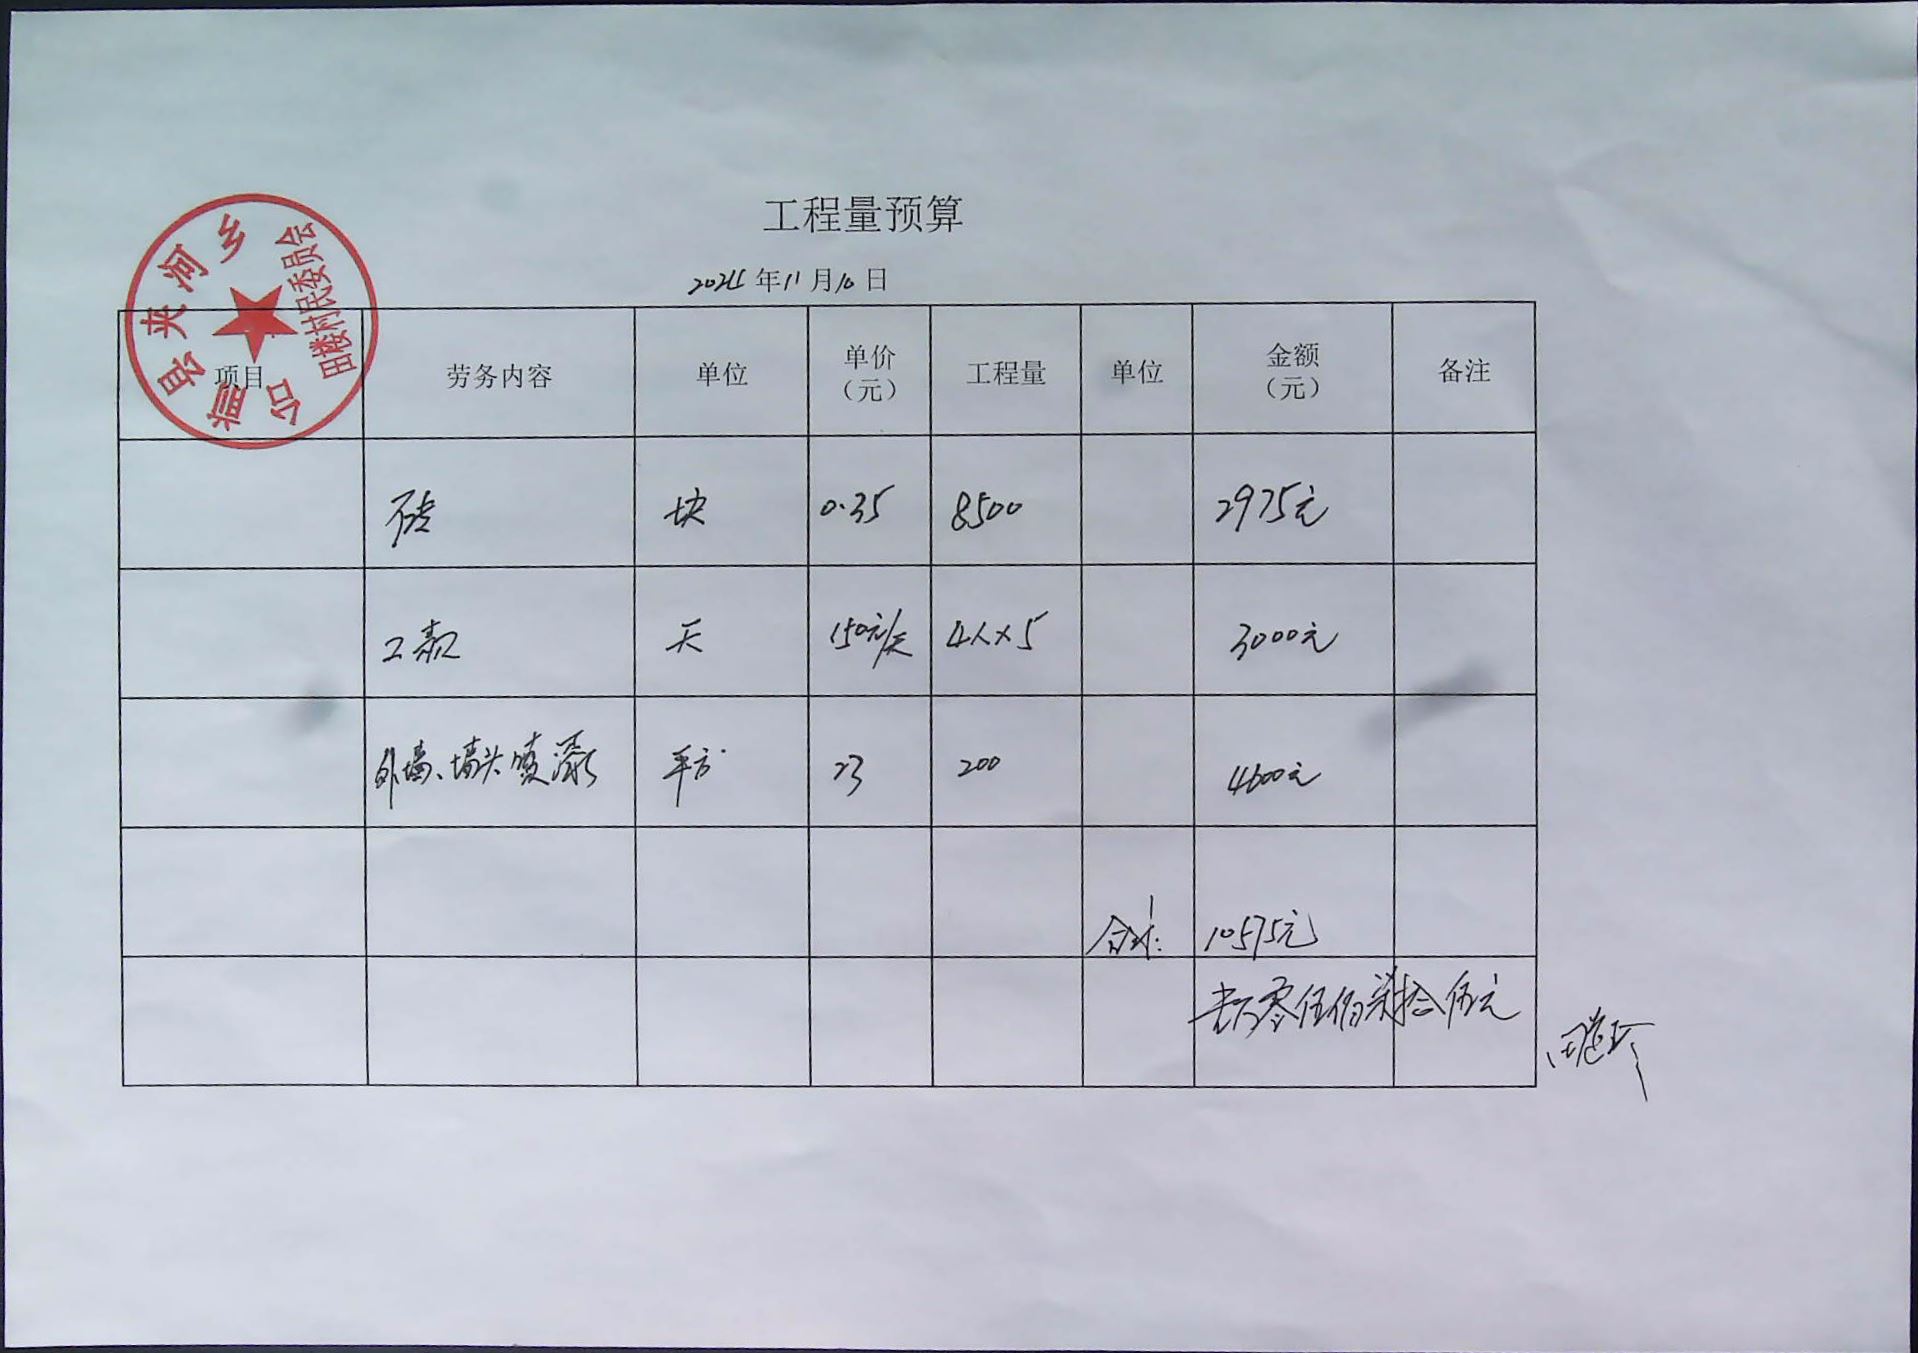 工程量预算
年11月10日
夹河乡
田楼村民委员会
项目 劳务内容 单位 单价（元） 工程量 单位 金额（元） 备注
砖 块 0.35 8500 2975元
工款 天 150元/天 4人×5 3000元
外墙、墙头喷漆 平方 23 200 4600元
合计： 10575元
壹万零伍佰柒拾伍元